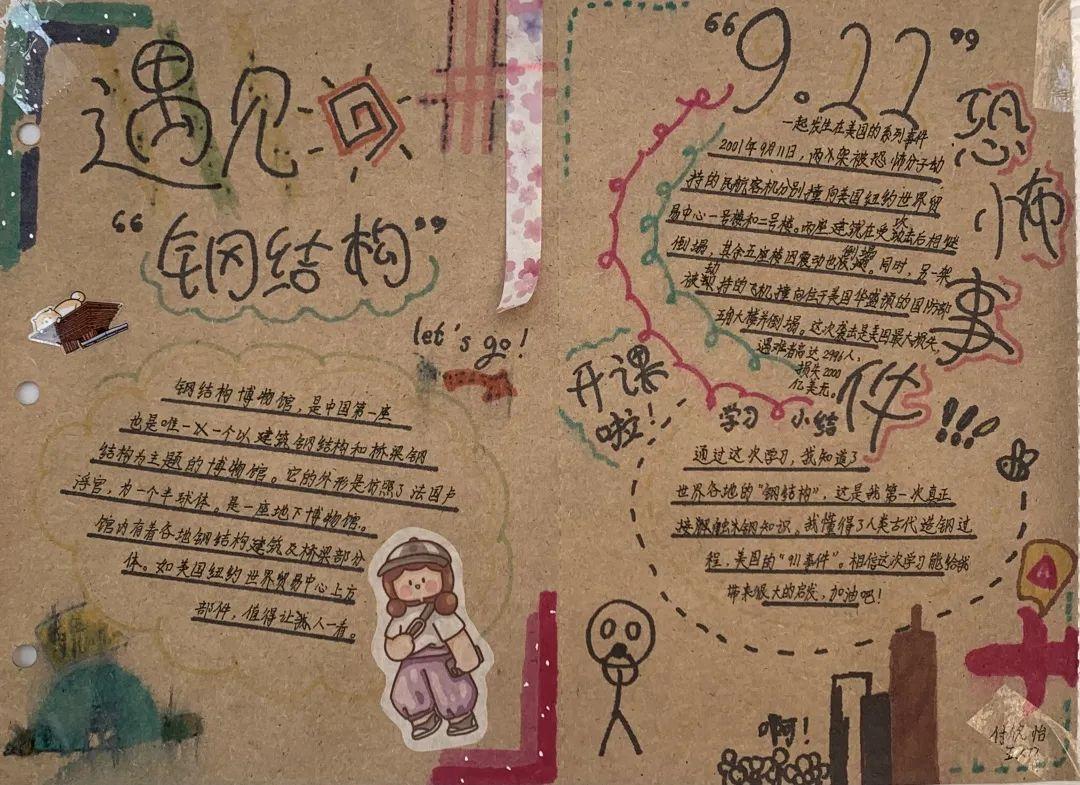 遇见
“钢结构”
let's go!
钢结构博物馆，是中国第一座
也是唯一一个以建筑钢结构和桥梁钢
结构为主题的博物馆。它的外形是仿照了法国卢
浮宫，为一个半球体。是一座地下博物馆。
馆内有着各地钢结构建筑及桥梁部分
体。如美国纽约世界贸易中心上方
部件，值得让人一看。
“9.11”
恐怖事件!!!
一起发生在美国的系列事件
2001年9月11日，两架被恐怖分子劫
持的民航客机分别撞向美国纽约世界贸
易中心一号楼和二号楼。两座建筑在受攻击后相继
倒塌，其余五座楼因震动也倒塌。同时，另一架
被劫持的飞机撞向位于美国华盛顿的国防部
五角大楼并倒塌。这次袭击是美国最大损失，
遇难者高达2996人，
损失2000
亿美元。
开课
啦！
学习 小结
通过这次学习，我知道了
世界各地的“钢结构”，这是我第一次真正
接触钢知识。我懂得了人类古代造钢过
程，美国的“911事件”。相信这次学习能给我
带来很大的启发，加油吧！
啊！